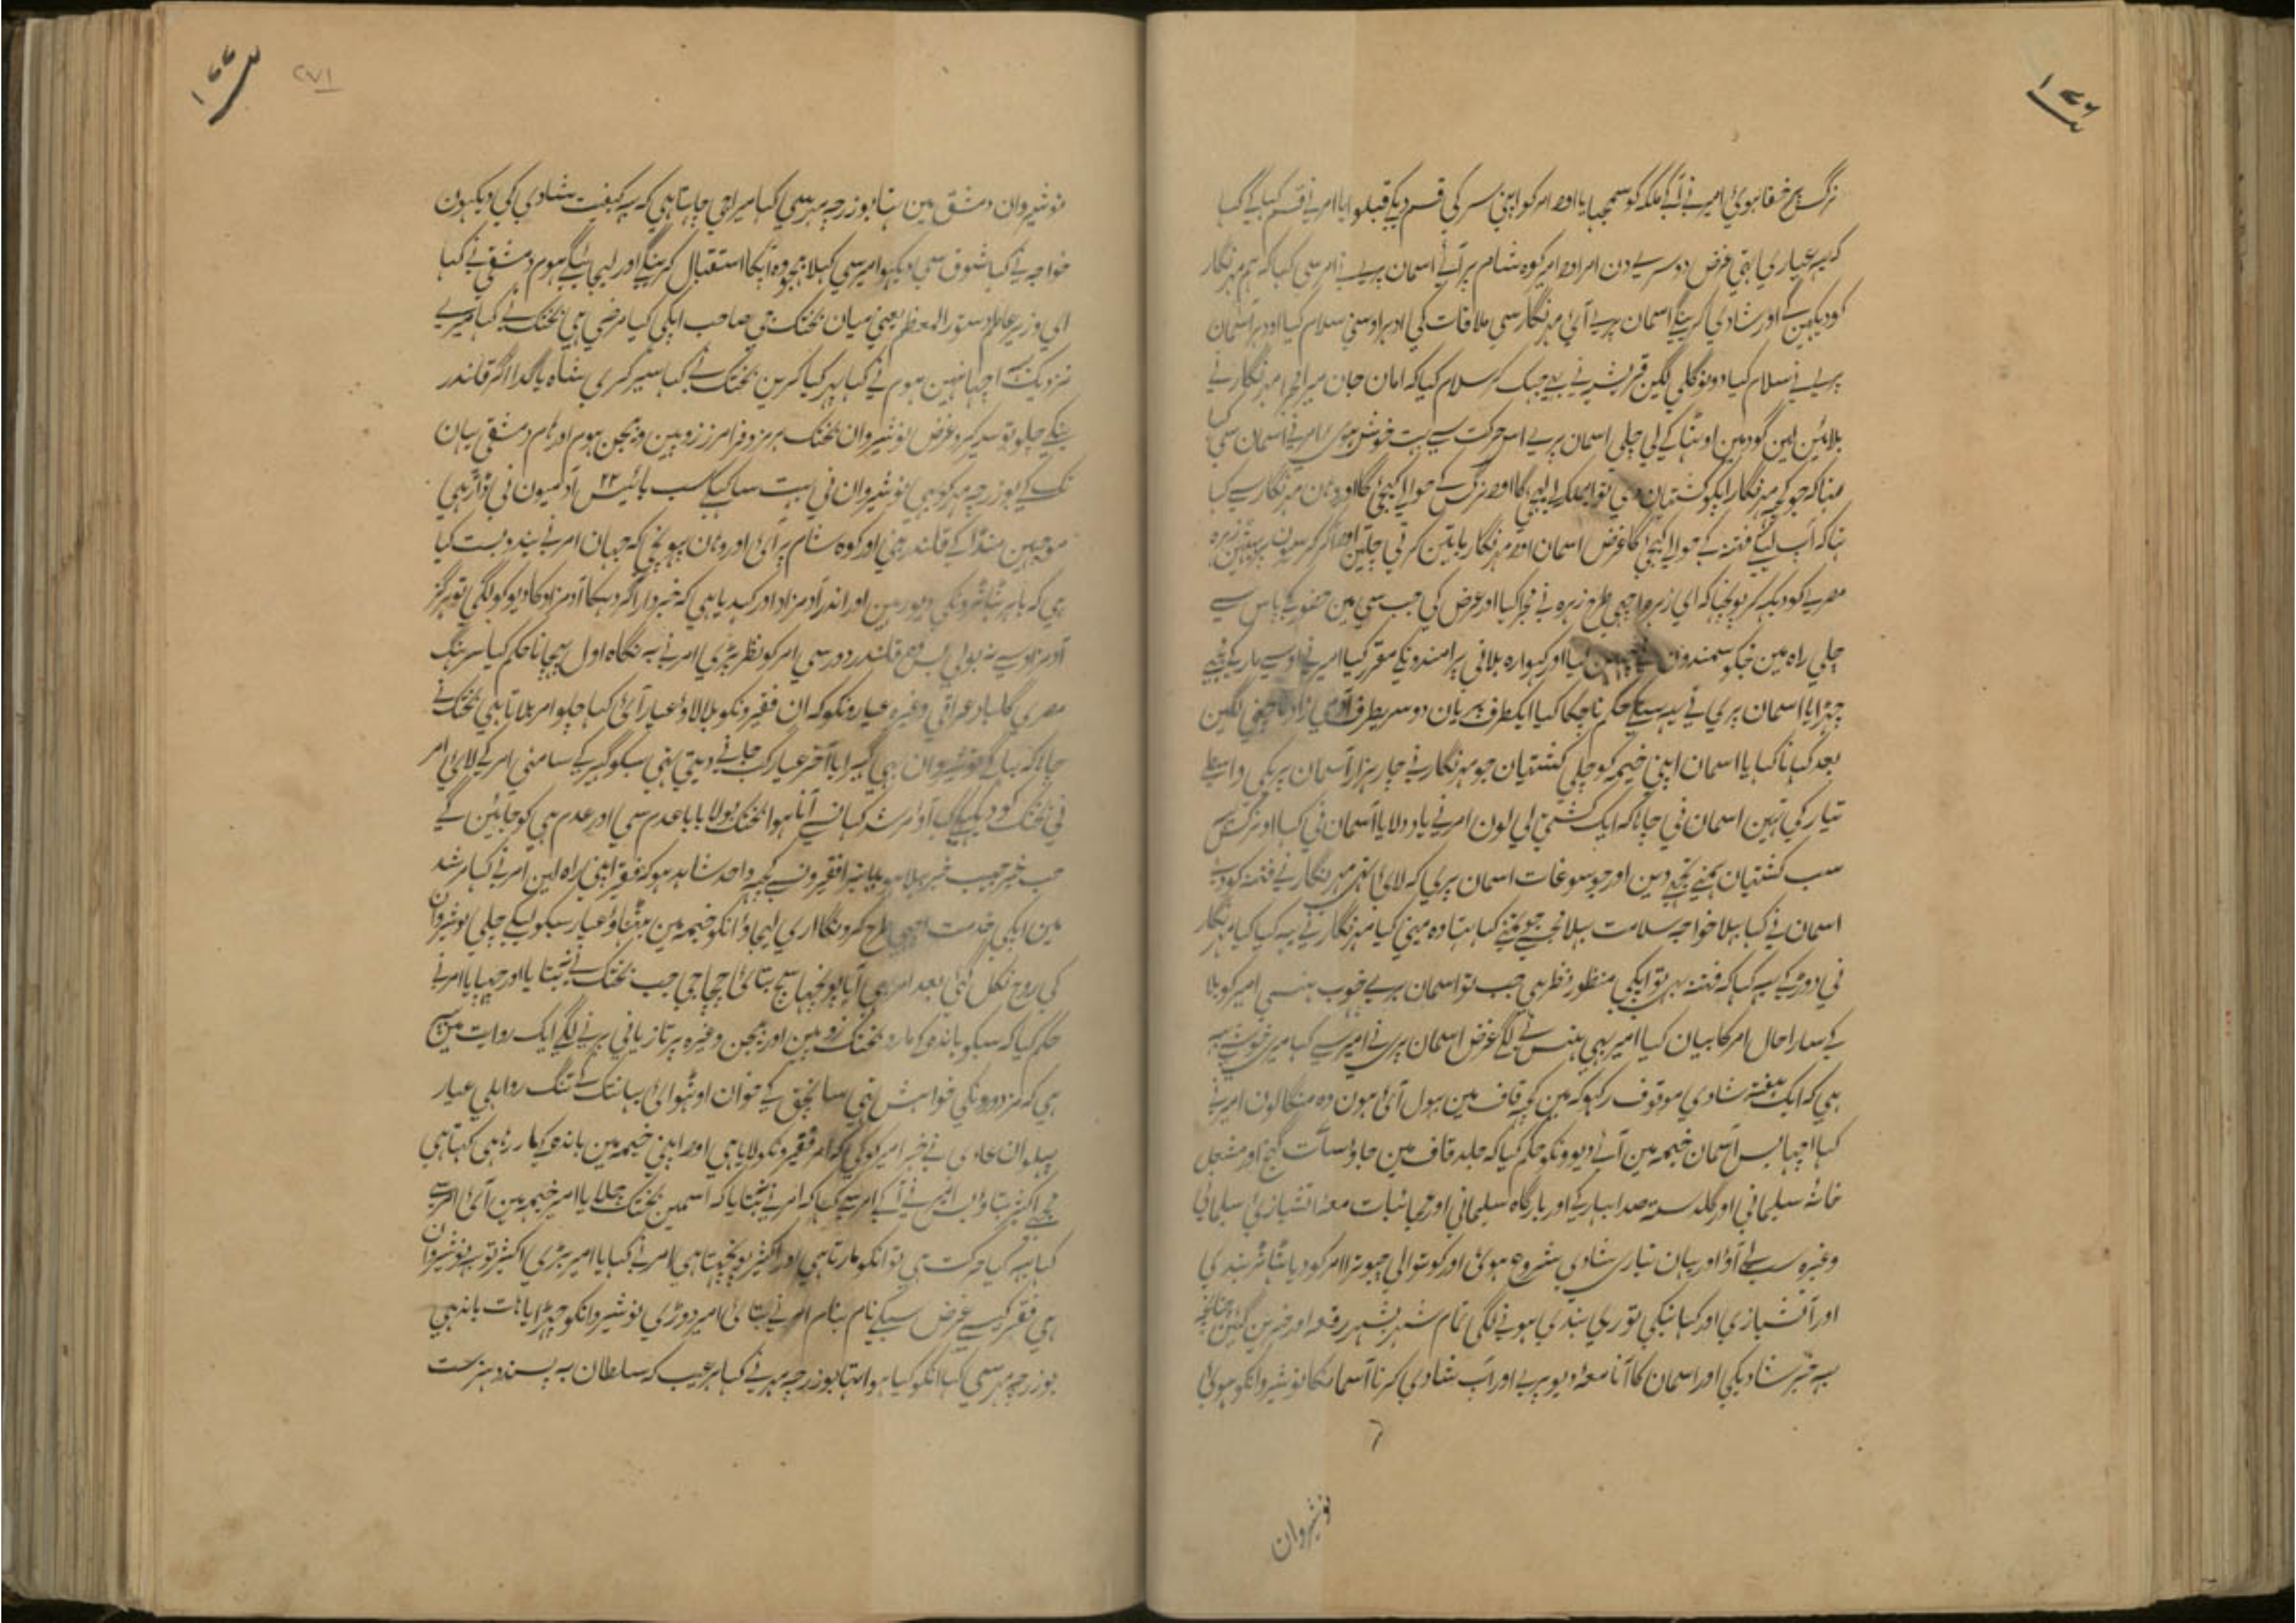 نرگس پر خفا ہوئی امیر نے آکے ملکہ کو سمجہایا اور امر کو اپنی سر کی قسم دیکے قبلوایا امر نے قسم کہا کے کہا
کہ یہ عیاری تہی غرض دوسرے دن امر اور امیر کوہ شام پر آئے اسمان پریے نے امر سے کہا کہ ہم مہرنگار
کو دیکہین گے اور شادی کرینگے اسمان پریے آئی مہرنگار سی ملاقات کی ادہر اوسنی سلام کیا اودہر آسمان
پریے نے سلام کیا دونو گلی لگین قریشہ نے بہے جہک کر سلام کیا کہ امان جان میرا مجرا مہرنگار نے
بلائین لین گود مین اوٹہا کے لی چلی اسمان پریے اس حرکت سے بہت خوش ہوئی امر نے اسمان سی کہا
کہ جو کچہ مہرنگار ایکو کشتیان دی تو نرگس کے حوالے کیجیٔ گا اور وہان مہرنگار سے کہا
کہ آپ لیکے فتنہ کے حوالے کیجیٔ گا غرض اسمان اور مہرنگار باتین کرتی چلین اور آکر کرسیون پر بیٹہین زہرہ
مصریے کو دیکہہ کر پونچہا کہ ای زہرہ اچہی طرح زہرہ نے مجرا کیا اور عرض کی جب سی مین حضور کے پاس سے
چلی راہ مین مجکو سمندون نے چہین لیا اور گہوارہ ہلانی پر مقرر کیا امیر نے اوسے مار کے مجہے
چہڑایا اسمان پری نے حکم ناچ کا کیا ایکطرف پریان دوسریطرف آدمی زاد ناچنی لگین
بعد کہانا کہایا اسمان اپنی خیمہ کو چلی کشتیان جو مہرنگار نے چار ہزار آسمان پریکی واسطے
تیار کی تہین اسمان نی جانا کہ ایک کشتی لی لون امر نے یاد دلایا آسمان نی کہا اور نرگس
سب کشتیان ہمنے تجہے دین اور جو سوغات اسمان پری کہ لائی تہی مہرنگار نے فتنہ کو دی
اسمان نے کہا بہلا خواجہ سلامت جو تمنے کہا تہا وہ مینی کیا مہرنگار نے یہ کیا کیا مہرنگار
نی دوڑ کے یہ کہا کہ فتنہ بہی تو ایکی منظور نظر ہی جب تو اسمان پریے خوب ہنسی امیر کو بلا
کے سارا حال امر کا بیان کیا امیر بہی ہنس نے لگے غرض اسمان پری نے امیر سے کہا میری خوشی یہ
ہی کہ ایک ہفتہ شادی موقوف رکہو کہ مین کچہ قاف مین بہول آئی ہون وہ منگالون امیر نے
کہا اچہا بس آسمان خیمہ مین آئے دیوونکو حکم کیا کہ جلد قاف مین جاؤ سات گنج اور مشعل
خانہ سلیمانی اور گلدستہ صدا بہار یے اور بارگاہ سلیمانی اور عجائبات معہ آتشبازی سلیمانی
وغیرہ سب لے آؤ اور یہان تیاری شادی شروع ہوئی اور کوتوالی چبوترا امر کو دیا ٹہاٹہر بندی
اور آتشبازی اور کہانیکی توری بندی ہونے لگی تمام شہر بشہر رقعہ اور خبرین گئین چنانچہ
یہ خبر شادیکی اور اسمان کا آنا معہ دیو پریے اور آب شادی کرنا آسمانکا نوشیروانکو ہوئی
نوشیروان
۲۷۱
نوشیروان دمشق مین تہا بوزرچہ مہر سی کہا میرا جی چاہتا ہی کہ یہ کیفیت شادی کی دیکہون
خواجہ نے کہا شوق سی دیکہو امیر سی کہلا بہیجو وہ آپکا استقبال کرینگے اور لیجائینگے ہوم دمشقی نے کہا
ای وزیر عالم دستور المعظم یعنی میان بختک جی صاحب ایکی کیا مرضی ہی بختک نے کہا میرے
نزدیک یہ اچہا نہین ہوم نے کہا پہر کیا کرین بختک نے کہا سیر کری شاہ یا گدا اگر قلندر
بنکے چلو تو سیر کرو غرض نوشیروان بختک ہرمز و فرامرز زوپین و بیجن ہوم اور بام دمشقی یہان
تک کے بوزرچہ مہر کو بہی نوشیروان نی بہت سا کہکے سب بائیس ۲۲ آدمیون نی ڈاڑہی
موچہین منڈا کے قلندر بنی اور کوہ شام پر آئی اور وہان پہونچی کہ جہان امر نے بندوبست کیا
ہی کہ باہر ٹہاٹہرونکی دیو ہین اور اندر آدمزاد اور کہدیا ہی کہ خبردار اگر دہکا آدمزاد کا دیو کو لگی تو ہرگز
آدمزاد سے نہ بولی بس یہ قلندر دور سی امر کو نظر پڑی امر نے بہ نگاہ اول پہچانا حکم کیا سرہنگ
مصری گلباد عراقی وغیرہ عیارونکو کہ ان فقیرونکو بلا لاؤ عیار آئی کہا چلو امر بلاتا ہی بختک نے
جانا کہ بہاگے نوشیروان بہی گہبرایا آخر عیار کب جانے دیتی تہی سبکو گہیر کے سامنی امر کے لائی امر
نی بختک کو دیکہا کہا آؤ مرشد کہان سے آنا ہوا بختک بولا بابا عدم سی اور عدم ہی کو جائین گے
واحد شاہد ہو کہ فقیر اپنی راہ لین امر نے کہا مرشد
مین ایکی خدمت اچہی طرح کرونگا اری لیجاؤ انکو خیمہ مین بٹہاؤ عیار سبکو لیکے چلی نوشیروان
کی روح نکل گئی بعد امر بہی آیا پونچہا سچ بتائی چچا جی جب بختک نے نہ بتایا اور چہپایا امر نے
حکم کیا کہ سبکو باندہ کے مارو بختک زوپین اور بیجن وغیرہ پر تازیانی پڑنے لگے ایک روایت مین یہ
ہی کہ مزدورونکی خواہش تہی ساچق کے خوان اوٹہوائی یہانتک کے تنگ رواہلی عیار
پہلوان عادی نے خبر امیر کو کی کہ امر فقیرونکو لایا ہی اور اپنی خیمہ مین باندہ کے مار رہا ہی کہتا ہی
مجہے اکثیر بتاؤ بس امیر نے آکے امر سے کہا کہ امر نے نہ بتایا کہ اسمین بختک چلایا امیر خیمہ مین آئی امر سے
کہا یہ کیا حرکت ہی تو انکو مارتا ہی اور اکثیر پونچہتا ہی امر نے کہا یا امیر بڑی اکثیر تو یہ نوشیروان
ہی فقیر کیسے غرض سبکے نام بنام امر نے بتائی امیر دوڑی نوشیروانکو چہڑایا ہات باندہی
بوزرچہ مہر سی کہا انکو کیا ہوا تہا بوزرچہ مہر نے کہا ہر عیب کہ سلطان بہ پسندد ہنرست